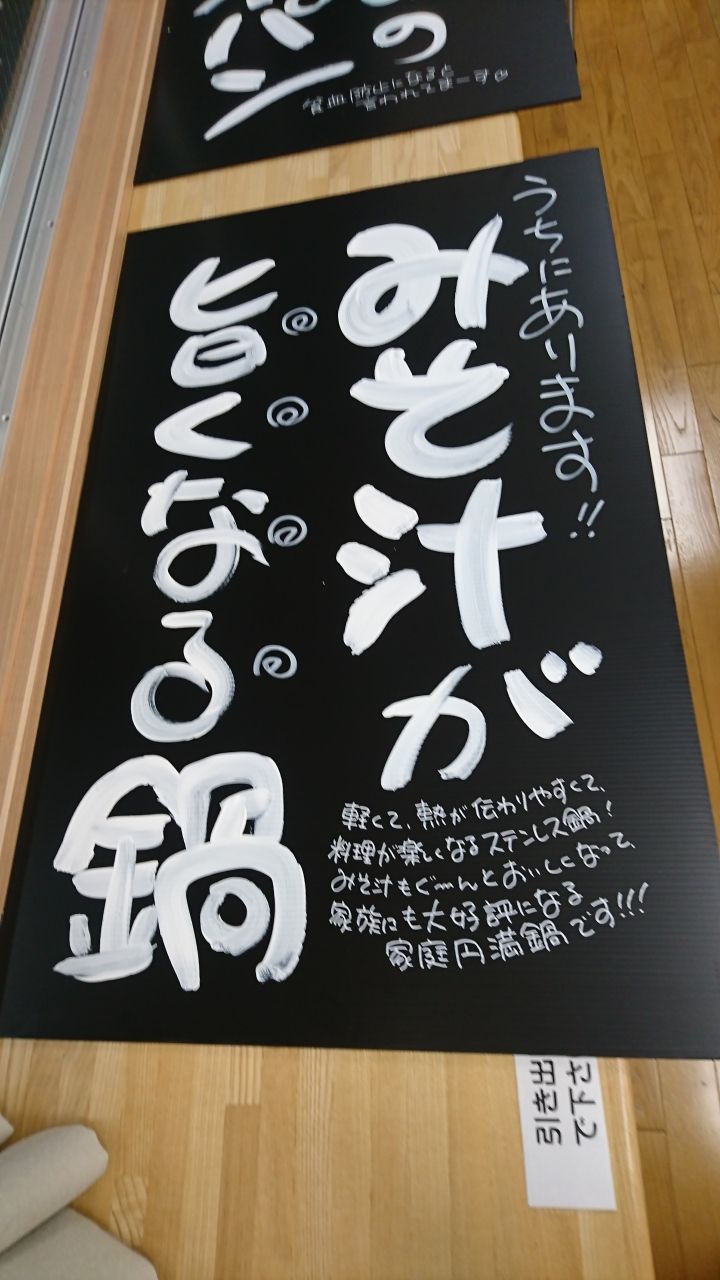 うちにあります!!
みそ汁が
旨くなる鍋
軽くて、熱が伝わりやすくて、
料理が楽しくなるステンレス鍋!
みそ汁もぐーんとおいしくなって、
家族にも大好評になる
家庭円満鍋です!!!
の
パン
貧血防止になると
言われてまーす
引き出
で下さ